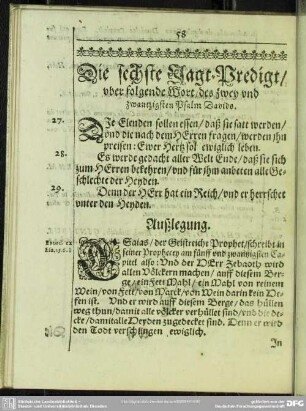 58
Die sechste Jagt-Predigt/
vber folgende Wort, des zwey vnd
zwantzigsten Psalm Davids.
27.
DJe Elenden sollen essen/ daß sie satt werden/
vnd die nach dem HErren fragen/ werden jhn
preisen: Ewer Hertz sol ewiglich leben.
28.
Es werde gedacht aller Welt Ende/ daß sie sich
zum HErren bekehren/ vnd für jhm anbeten alle Ge-
schlechte der Heyden.
29.
Denn der HErr hat ein Reich/ vnd er herrschet
vnter den Heyden.
Außlegung.
ESaias/ der Geistreiche Prophet/ schreibt in
seiner Prophecey am fünff vnd zwantzigsten Ca-
pitel also: Vnd der HErr Zebaoth wird
allen Völckern machen/ auff diesem Ber-
ge/ ein Fett Mahl/ ein Mahl von reinem
Wein/ von Fett/ von Marck/ von Wein darin kein He-
fen ist. Vnd er wird auff diesem Berge/ das hüllen
weg thun/ damit alle völcker verhüllet sind/ vnd die de-
cke/ damit alle Heyden zugedecket sind. Denn er wird
den Todt verschlingen ewiglich.
Jn